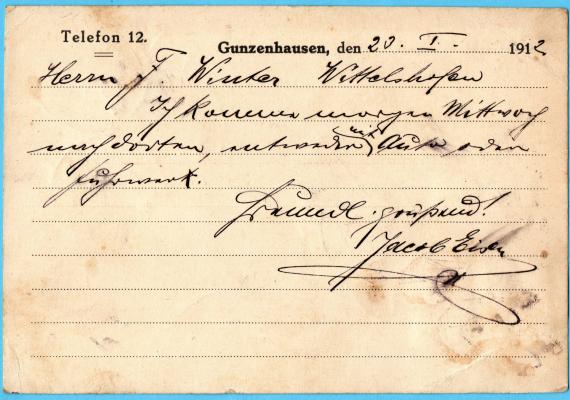 Telefon 12.
Gunzenhausen, den 23. I. 1912
Herrn F. Winter Wittelshofen
Ich komme morgen Mittwoch
nach dorten, entweder mit Auto oder
Fuhrwerk.
Freundl. grüßend!
Jacob Eisen